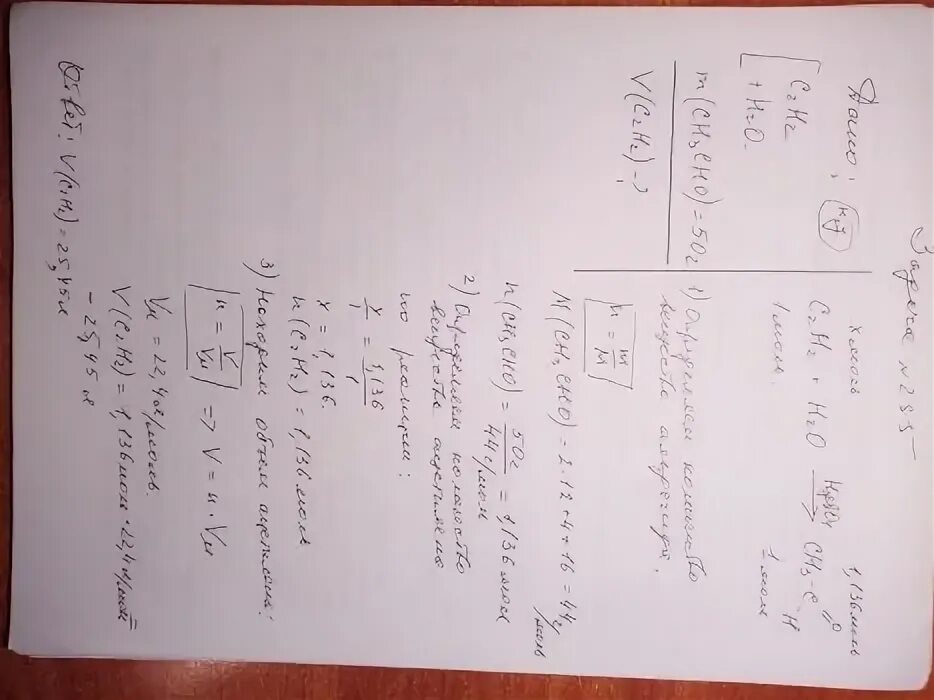 Задача №235
Дано:
н.у
C₂H₂
+ H₂O
m(CH₃CHO)=50г
V(C₂H₂)-?
x моль 1,136 моль
C₂H₂ + H₂O → CH₃-C
O
H
1 моль 1 моль
1) Определяем количество
вещества альдегида:
n = m/M
M(CH₃CHO) = 2·12+4+16 = 44г/моль
n(CH₃CHO) = 50г/44г/моль = 1,136 моль
2) Определяем количество
вещества ацетилена
по реакции:
x/1 = 1,136/1
x = 1,136.
n(C₂H₂) = 1,136 моль
3) Находим объем ацетилена:
n = V/Vм => V = n · Vм
Vм = 22,4 л/моль.
V(C₂H₂) = 1,136моль·22,4л/моль =
- 25,45 л
Ответ: V(C₂H₂) = 25,45л